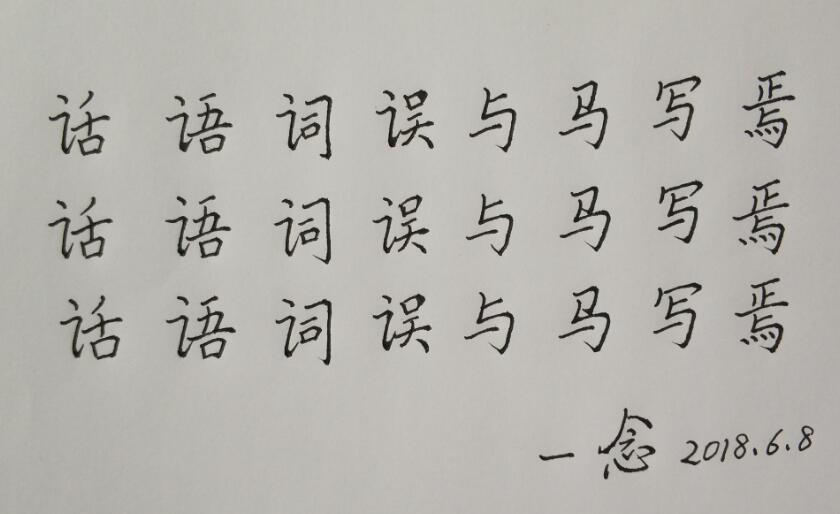 话语词误与马写焉
话语词误与马写焉
话语词误与马写焉
一念 2018.6.8